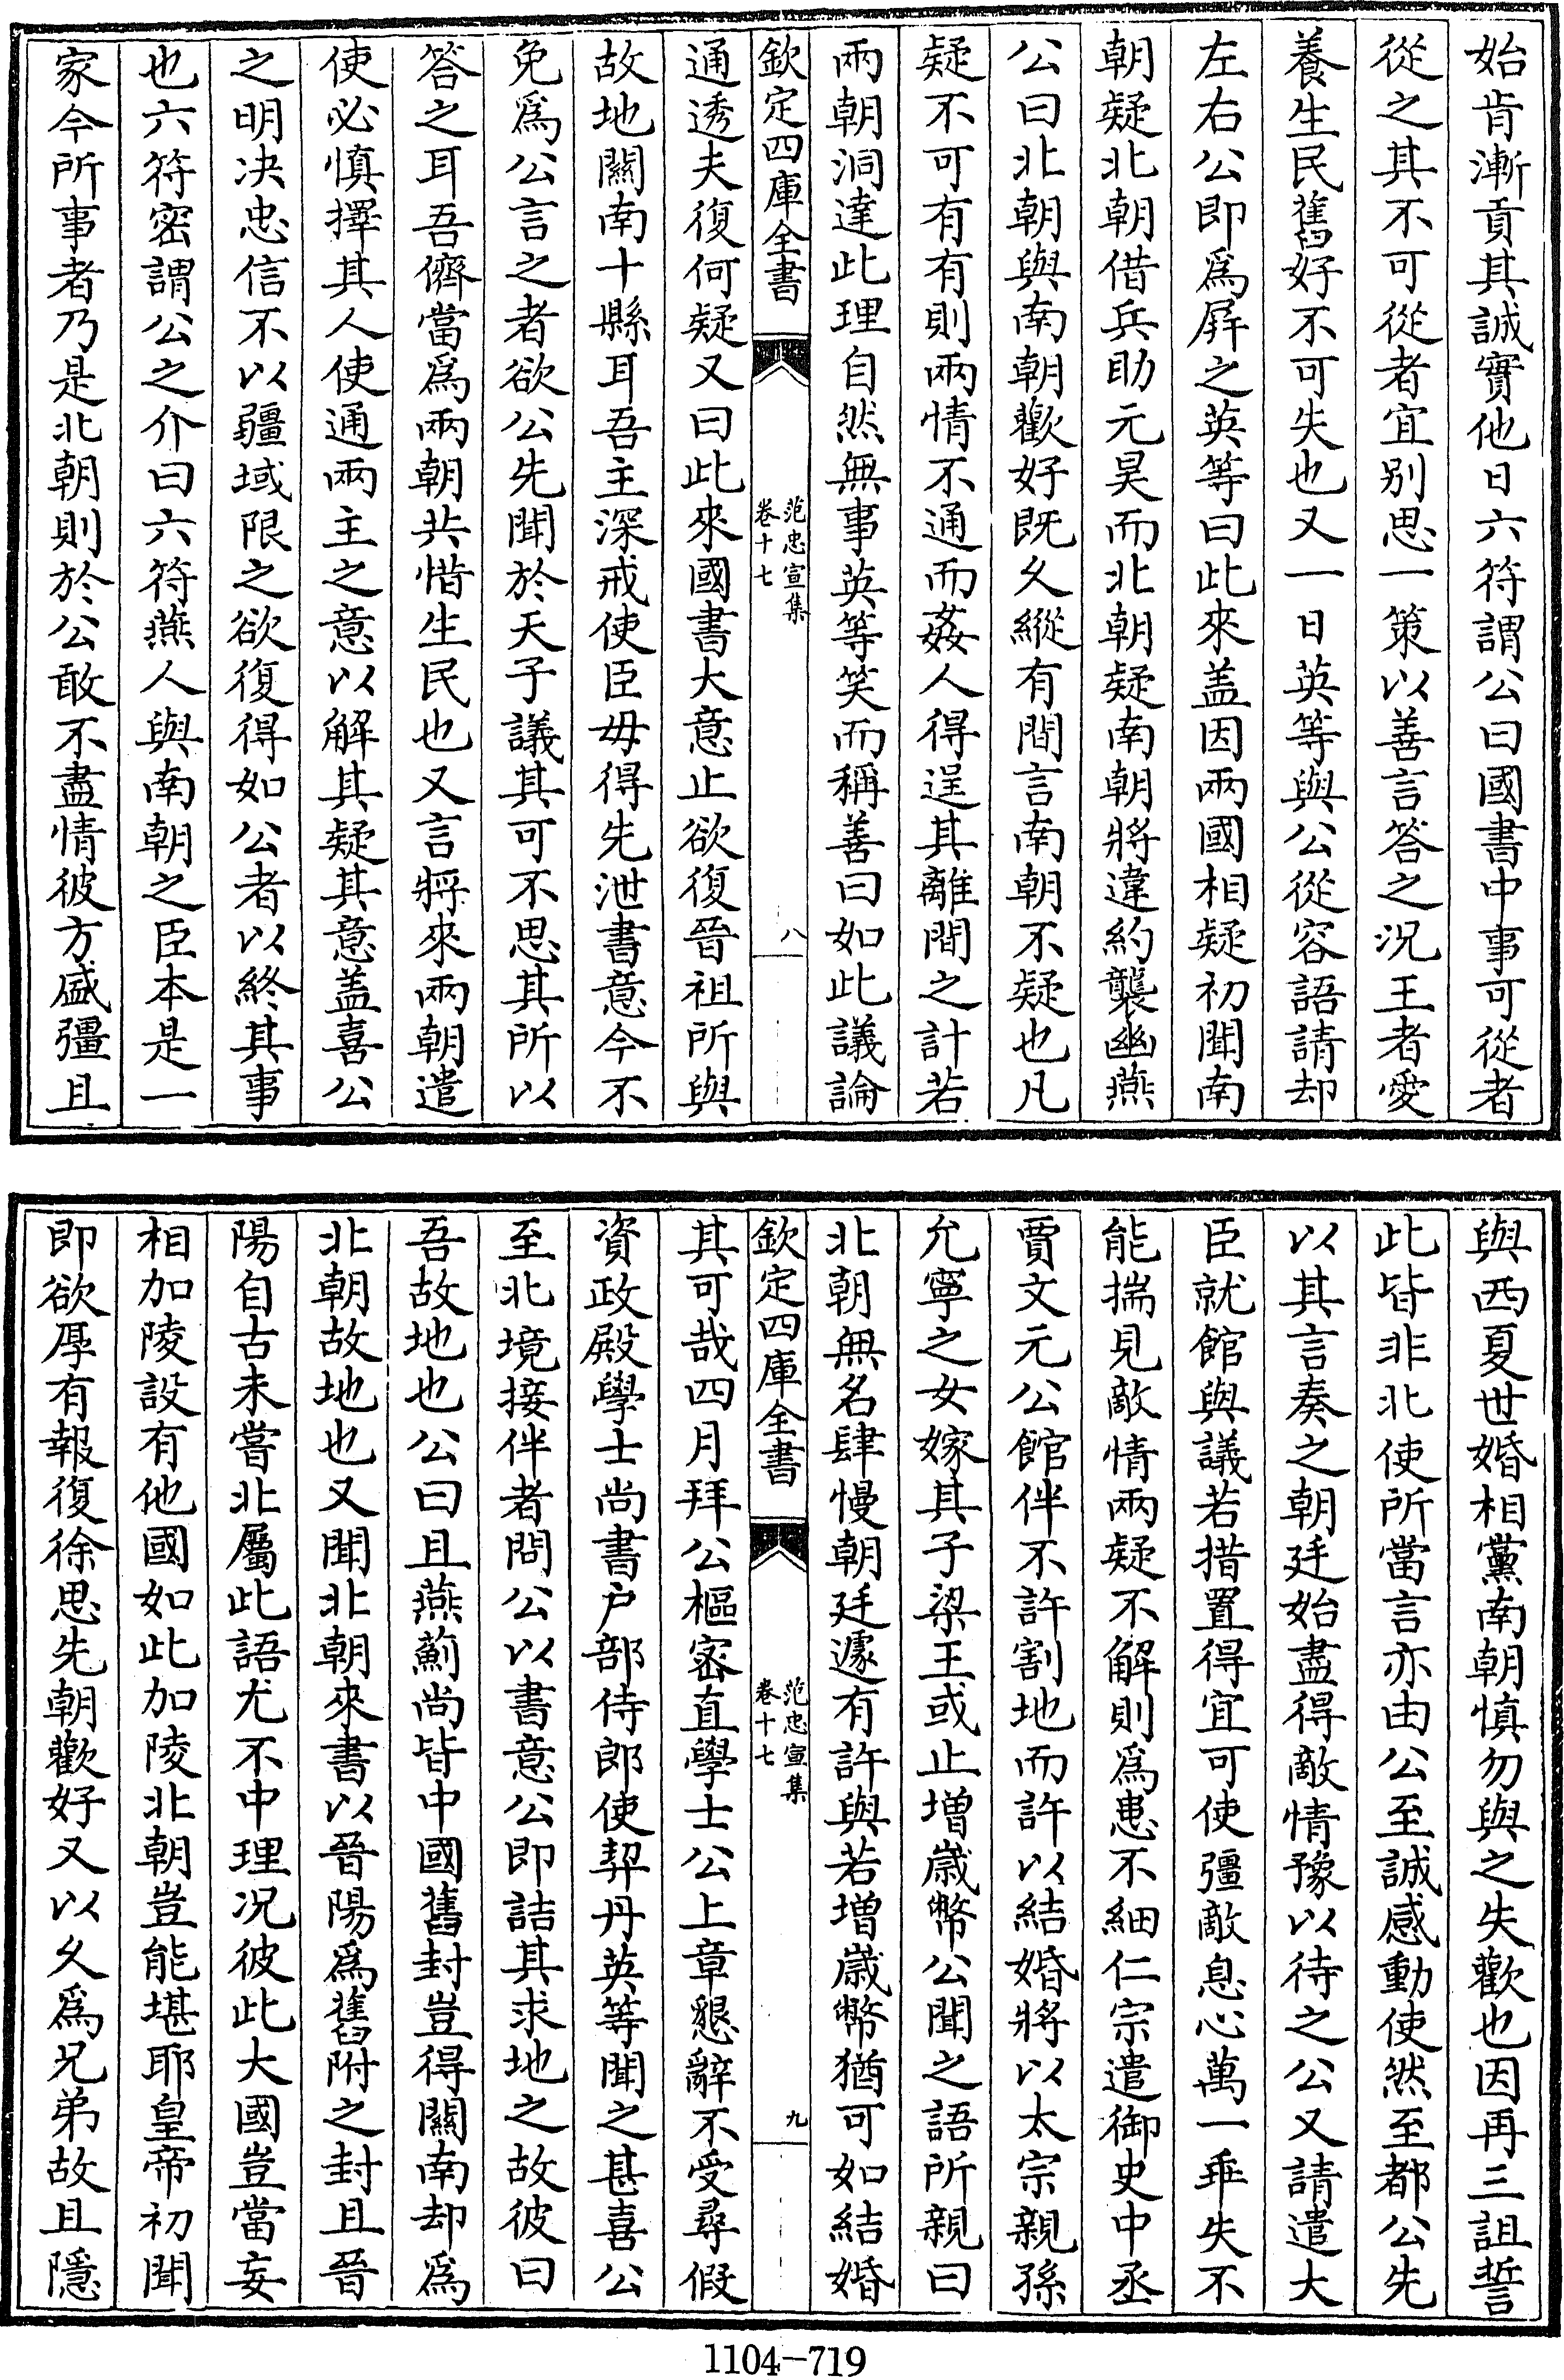 始肯漸貢其誠實他日六符謂公曰國書中事可從者
從之其不可從者宜别思一策以善言答之况王者愛
養生民舊好不可失也又一日英等與公從容語請却
左右公即爲屏之英等曰此來盖因兩國相疑初聞南
朝疑北朝借兵助元昊而北朝疑南朝將違約襲幽燕
公曰北朝與南朝歡好既久縱有間言南朝不疑也凡
疑不可有有則兩情不通而姦人得逞其離間之計若
兩朝洞達此理自然無事英等笑而稱善曰如此議論
欽定四庫全書
范忠宣集
卷十七
八
通透夫復何疑又曰此來國書大意止欲復晉祖所與
故地關南十縣耳吾主深戒使臣毋得先泄書意今不
免爲公言之者欲公先聞於天子議其可不思其所以
答之耳吾儕當爲兩朝共惜生民也又言將來兩朝遣
使必慎擇其人使通兩主之意以解其疑其意盖喜公
之明决忠信不以疆域限之欲復得如公者以終其事
也六符密謂公之介曰六符燕人與南朝之臣本是一
家今所事者乃是北朝則於公敢不盡情彼方盛彊且
與西夏世婚相黨南朝慎勿與之失歡也因再三詛誓
此皆非北使所當言亦由公至誠感動使然至都公先
以其言奏之朝廷始盡得敵情豫以待之公又請遣大
臣就館與議若措置得宜可使彊敵息心萬一乖失不
能揣見敵情兩疑不解則爲患不細仁宗遣御史中丞
賈文元公館伴不許割地而許以結婚將以太宗親孫
允寧之女嫁其子梁王或止增歲幣公聞之語所親曰
北朝無名肆慢朝廷遽有許與若增歲幣猶可如結婚
欽定四庫全書
范忠宣集
卷十七
九
其可哉四月拜公樞密直學士公上章懇辭不受尋假
資政殿學士尚書户部侍郎使契丹英等聞之甚喜公
至北境接伴者問公以書意公即詰其求地之故彼曰
吾故地也公曰且燕薊尚皆中國舊封豈得關南却爲
北朝故地也又聞北朝來書以晉陽爲舊附之封且晉
陽自古未嘗北屬此語尤不中理况彼此大國豈當妄
相加陵設有他國如此加陵北朝豈能堪耶皇帝初聞
即欲厚有報復徐思先朝歡好又以久爲兄弟故且隱
1104-719